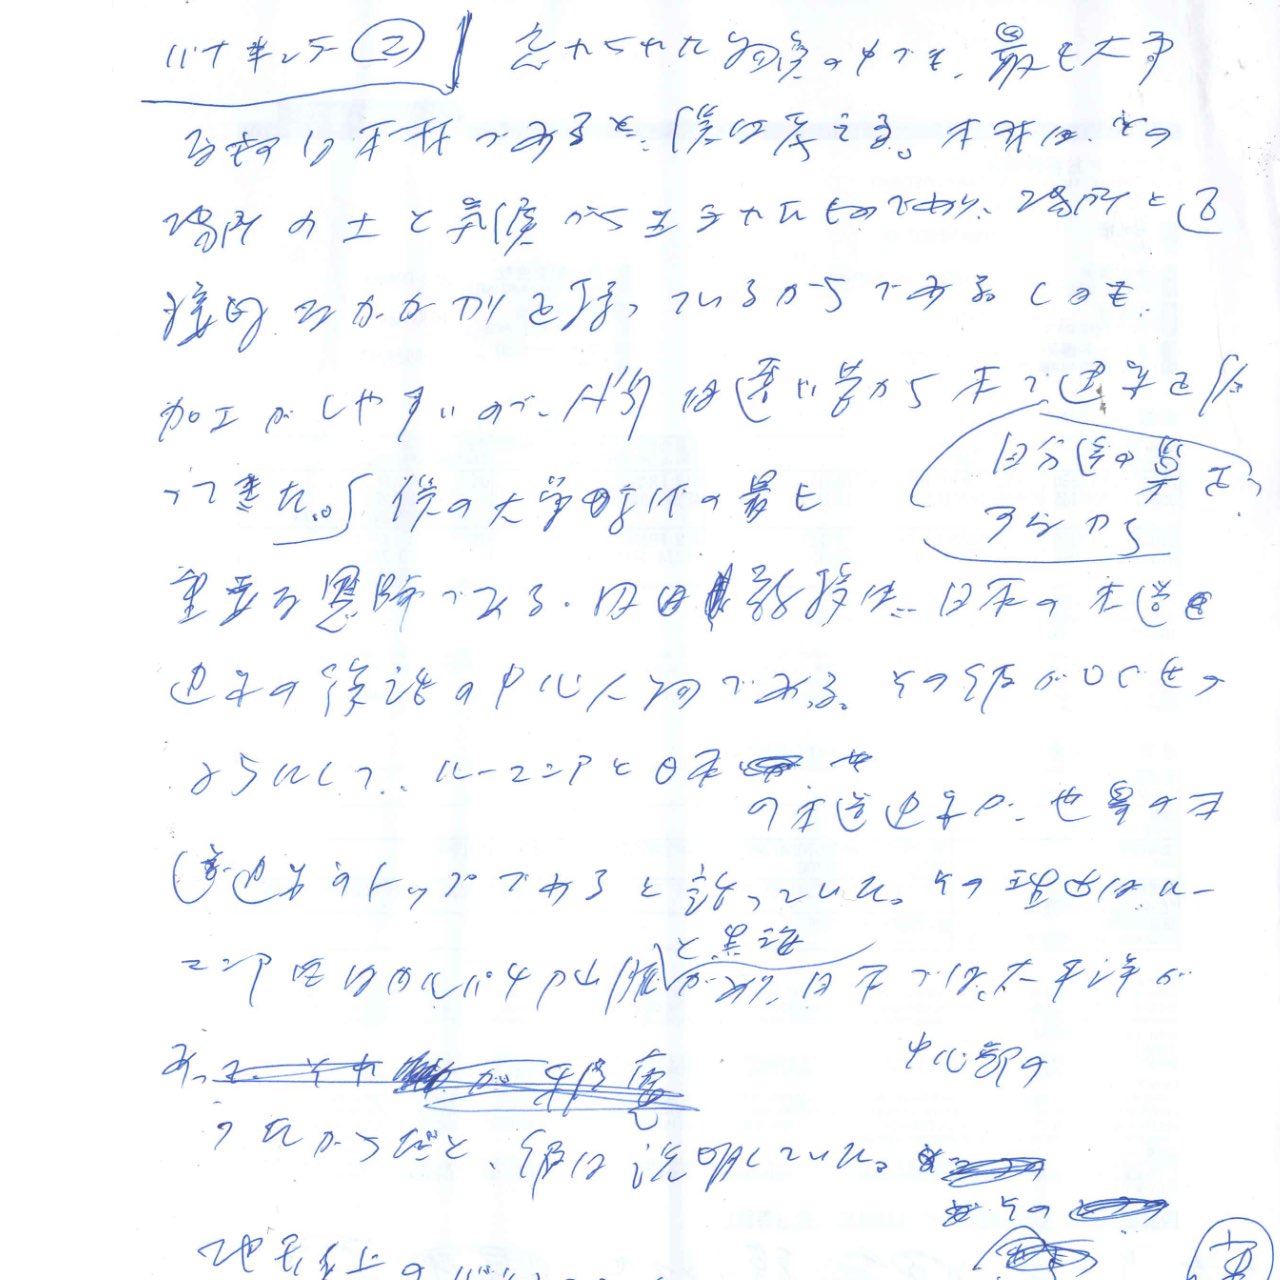 バナキュラ②
忘れられた物質の中でも、最も大事
なものは木材であると、僕は考える。木材は、その
場所の土と気候から生まれたものであり、場所と直
接的なかかわりを持っているからである。しかも、
加工がしやすいので、人間は遠い昔から木で建築を作
ってきた。僕の大学時代の最も
自分達の巣を
重要な恩師である、内田教授は、日本の木造
建築の復活の中心人物である。その彼が口ぐせの
ようにして、ルーマニアと日本
の木造建築が、世界の木
造建築のトップであると語っていた。その理由はルー
マニアにはカルパチア山脈
と黒海
があり、日本では、太平洋が
あ
中心部の
ったからだと、彼は説明していた。
その
地球上の